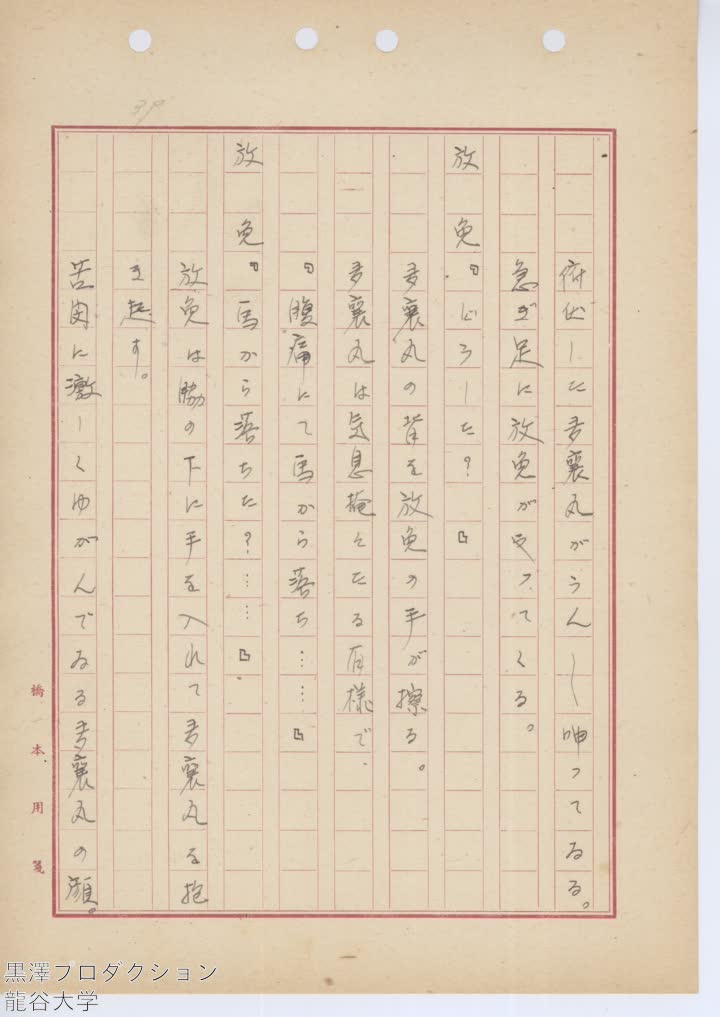 俯伏した多襄丸がうん〳〵呻ってゐる。
急ぎ足に放免が戻ってくる。
放免『どうした？』
多襄丸の背を放免の手が擦る。
多襄丸は気息掩々たる有様で、
『腹痛にて馬から落ち……』
放免『馬から落ちた？……』
放免は脇の下に手を入れて多襄丸を抱
き起す。
苦悶に激しくゆがんでゐる多襄丸の顔。
橋本用箋
黒澤プロダクション
龍谷大学